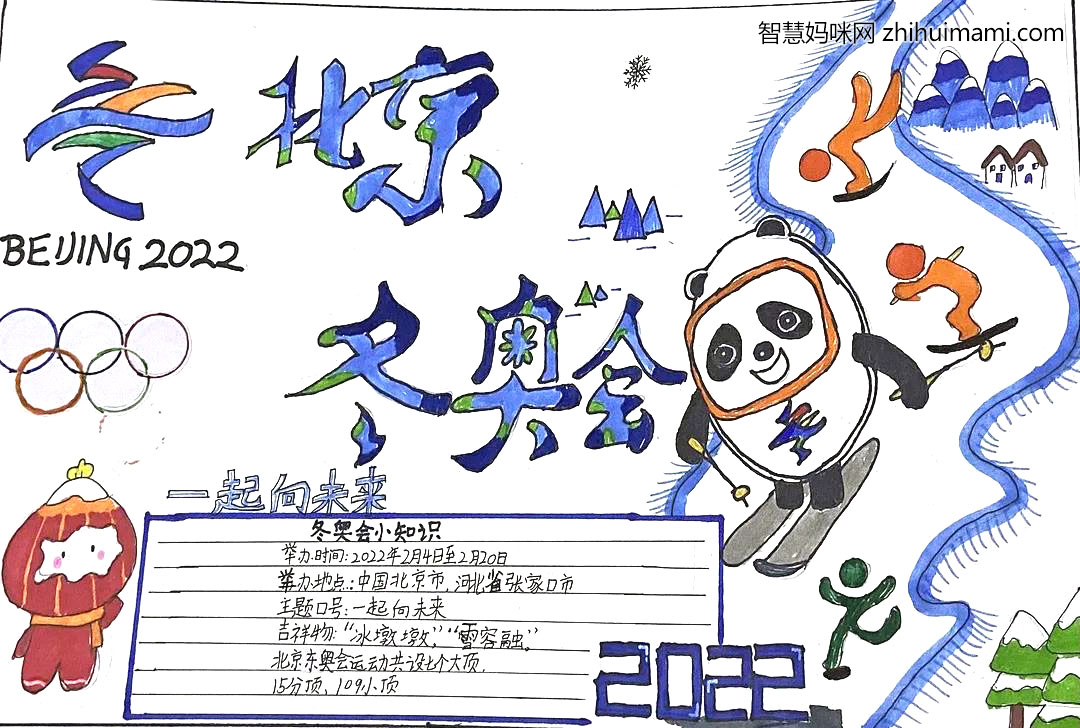 智慧妈咪网 zhihuimami.com
北京
BEIJING 2022
冬奥会
一起向未来
冬奥会小知识
举办时间:2022年2月4日至2月20日
举办地点:中国北京市,河北省张家口市
主题口号:一起向未来
吉祥物:“冰墩墩,”“雪容融。”
北京东奥会运动共设七个大项,
15分项,109小项
2022